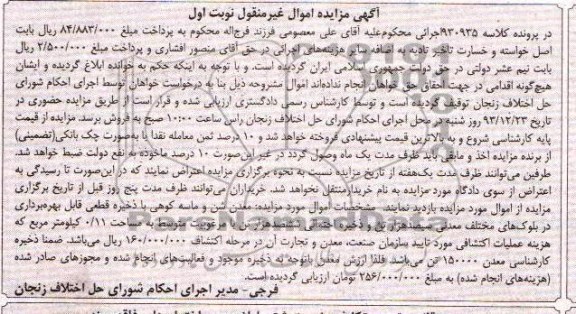 آگهی مزایده اموال غیرمنقول نوبت اول
در پرونده کلاسه ۹۳۰۹۳۵اجرائی محکوم‌علیه آقای علی معصومی فرزند فرج‌اله محکوم به پرداخت مبلغ ۸۴/۸۸۳/۰۰۰ ریال بابت
اصل خواسته و خسارت تاخیر تادیه به اضافه سایر هزینه‌های اجرائی در حق آقای منصور افشاری و پرداخت مبلغ ۲/۵۰۰/۰۰۰ ریال
بابت نیم عشر دولتی در حق دولت جمهوری اسلامی ایران گردیده است. و با توجه به اینکه حکم به خوانده ابلاغ گردیده و ایشان
هیچ‌گونه اقدامی در جهت احقاق حق خواهان انجام نداده‌اند اموال مشروحه ذیل بنا به درخواست خواهان توسط اجرای احکام شورای
حل اختلاف زنجان توقیف گردیده است و توسط کارشناس رسمی دادگستری ارزیابی شده و قرار است از طریق مزایده حضوری در
تاریخ ۹۳/۱۲/۲۳ روز شنبه در محل اجرای احکام شورای حل اختلاف زنجان راس ساعت ۱۰:۰۰ صبح به فروش برسد. مزایده از قیمت
پایه کارشناسی شروع و به بالاترین قیمت پیشنهادی فروخته خواهد شد و ۱۰ درصد ثمن معامله نقدا یا به‌صورت چک بانکی(تضمینی)
از برنده مزایده اخذ و مابقی باید ظرف مدت یک ماه وصول گردد در غیر این‌صورت ۱۰ درصد ماخوذه به نفع دولت ضبط خواهد شد.
طرفین می‌توانند ظرف مدت یک‌هفته از تاریخ مزایده نسبت به نحوه برگزاری مزایده اعتراض نمایند که در این‌صورت تا رسیدگی به
اعتراض از سوی دادگاه مورد مزایده به نام خریدار منتقل نخواهد شد. خریداران می‌توانند ظرف مدت پنج روز قبل از تاریخ برگزاری
مزایده از اموال مورد مزایده بازدید نمایند. مشخصات اموال مورد مزایده: معدن شن و ماسه کوهی با ذخیره قطعی قابل بهره‌برداری
در بلوک‌های مختلف معدنی سیصدهزار تن و ذخیره احتمالی ششصدهزار تن با مرغوبیت متوسط به مساحت ۰/۱۱ کیلومتر مربع که
هزینه عملیات اکتشافی مورد تایید سازمان صنعت، معدن و تجارت آن در مرحله اکتشاف ۱۶۰/۰۰۰/۰۰۰ ریال می‌باشد. ضمنا ذخیره
کارشناسی معدن ۱۵۰۰۰۰ تن می‌باشد. فلذا ارزش معدن باتوجه به ذخیره موجود و فعالیت‌های انجام شده و مجوزهای صادر شده
(هزینه‌های انجام شده) به مبلغ ۲۵۶/۰۰۰/۰۰۰ تومان ارزیابی گردیده است.
فرجی- مدیر اجرای احکام شورای حل اختلاف زنجان